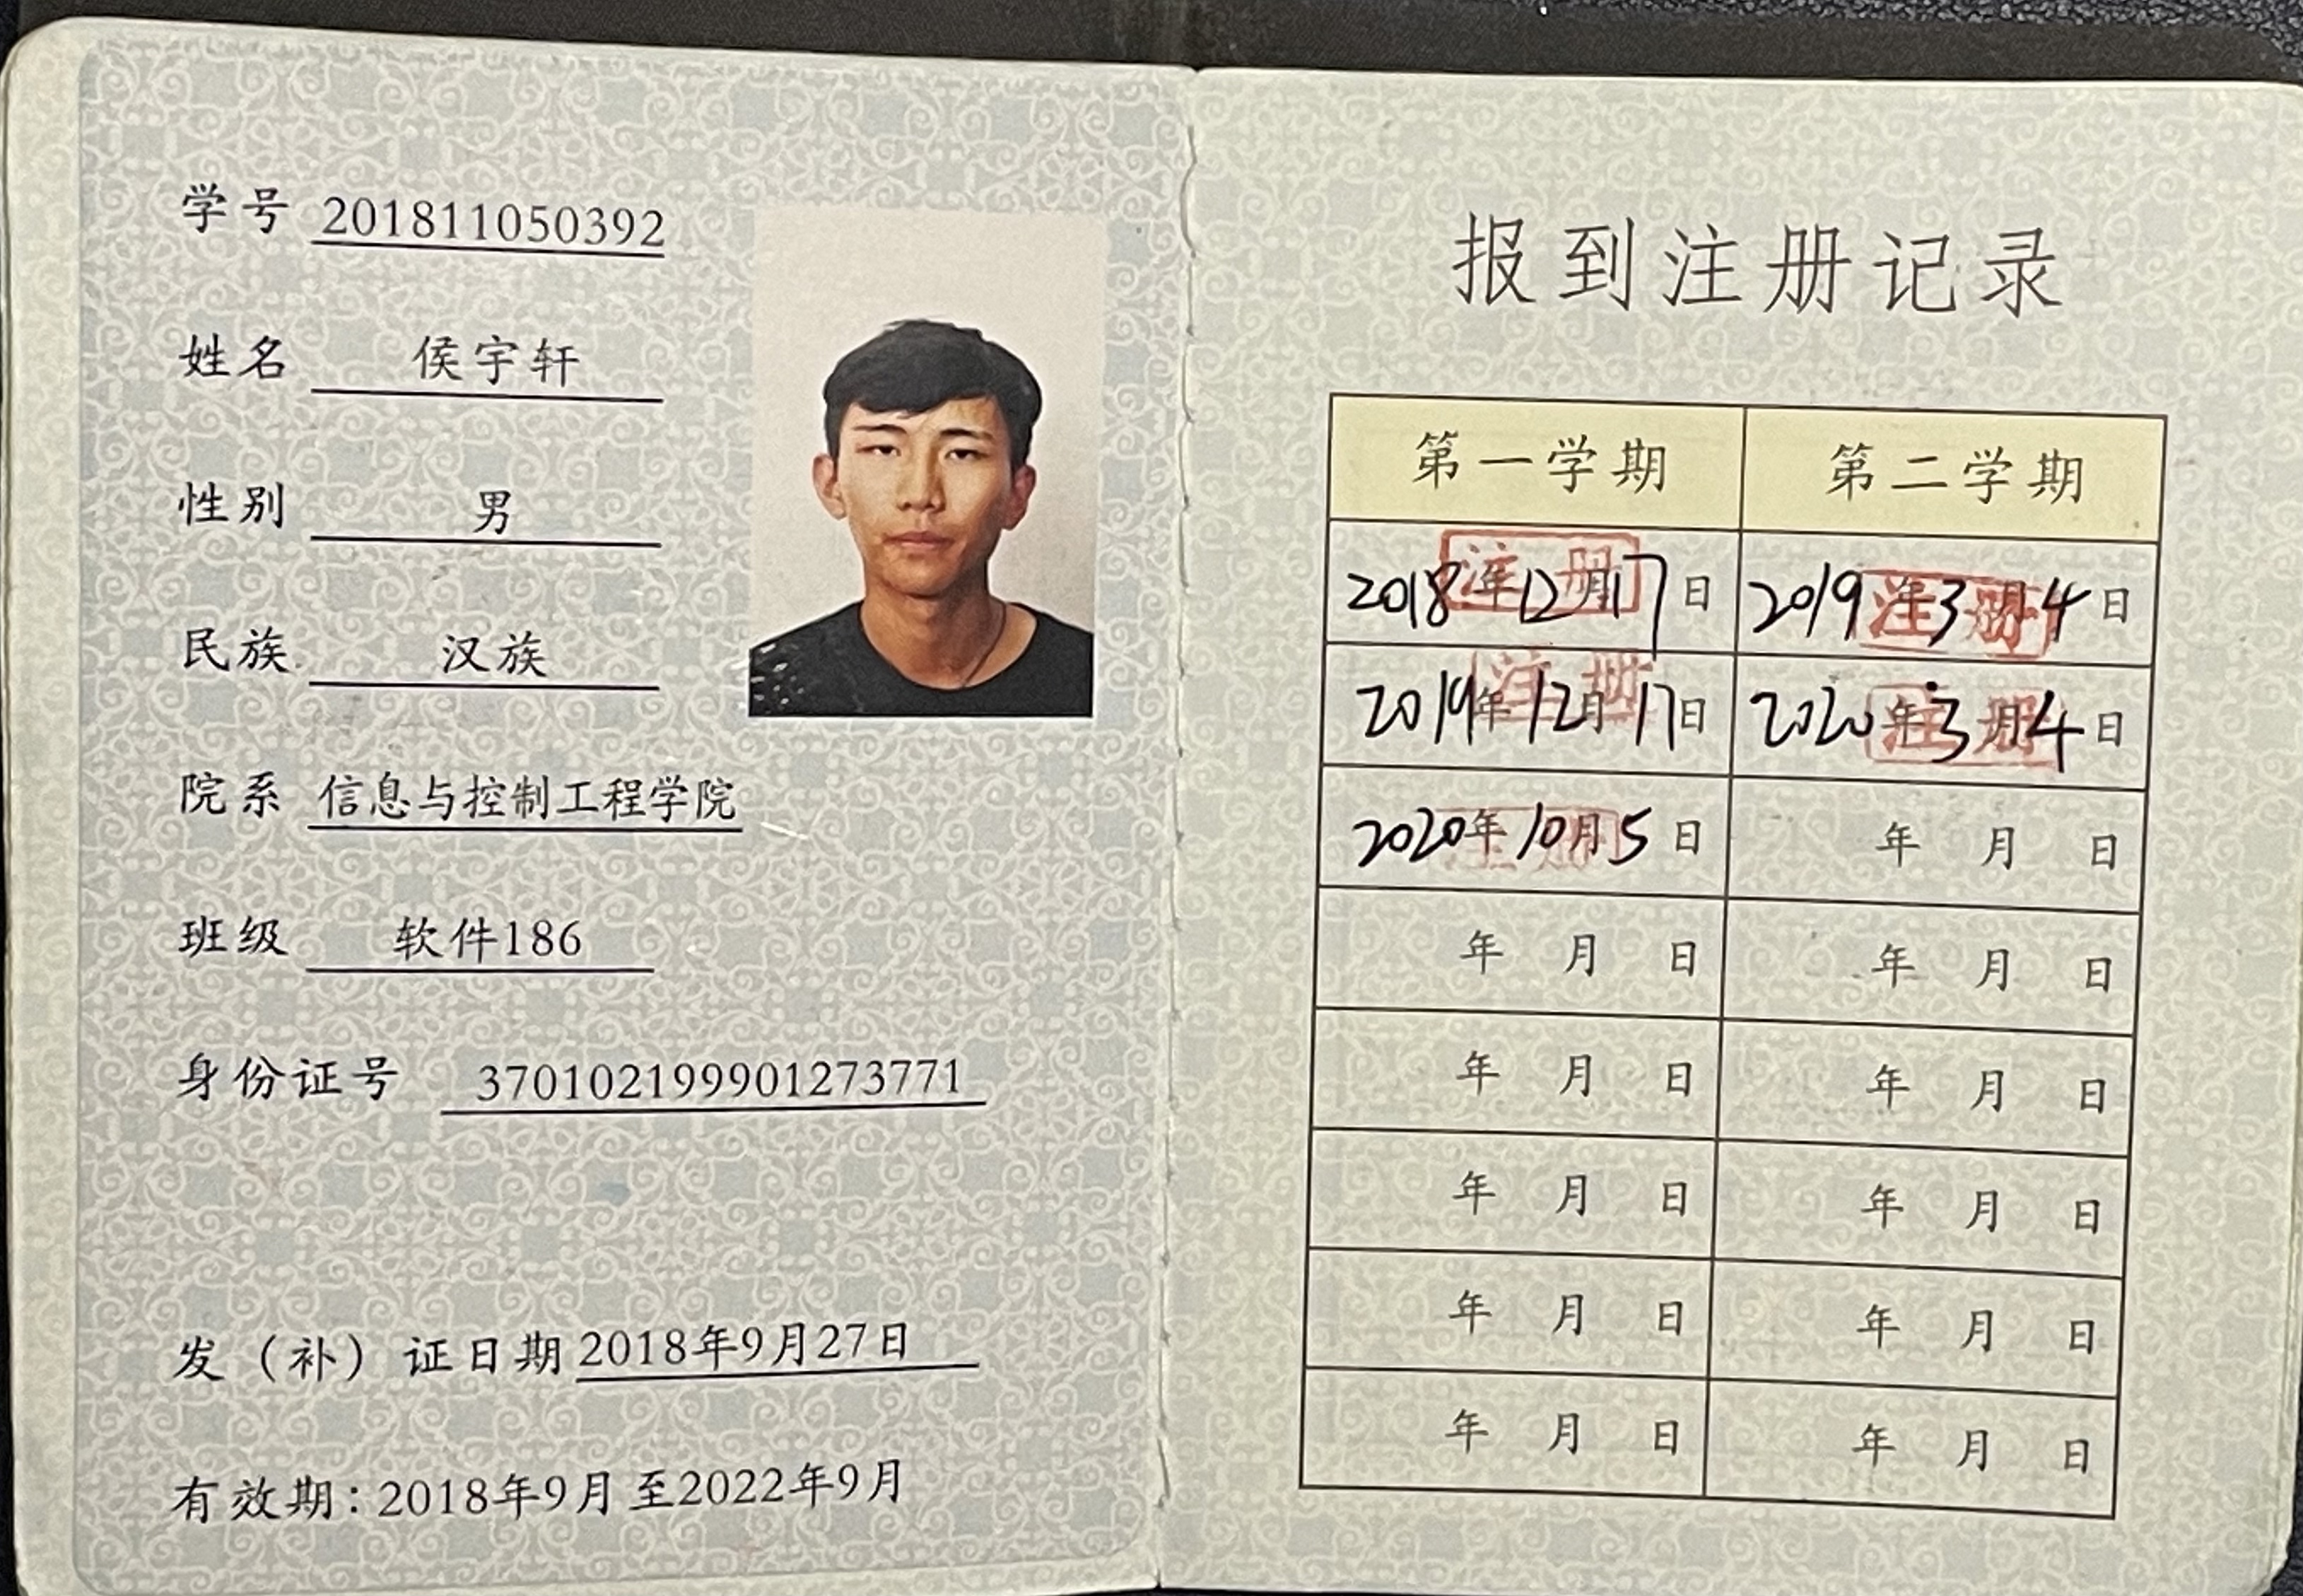 学号 201811050392
姓名 侯宇轩
性别 男
民族 汉族
院系 信息与控制工程学院
班级 软件186
身份证号 370102199901273771
发（补）证日期 2018年9月27日
有效期：2018年9月至2022年9月
报到注册记录
第一学期 第二学期
2018年12月17日 2019年3月4日
注册 注册
2019年12月17日 2020年3月4日
注册 注册
2020年10月5日 年 月 日
注册
年 月 日 年 月 日
年 月 日 年 月 日
年 月 日 年 月 日
年 月 日 年 月 日
年 月 日 年 月 日